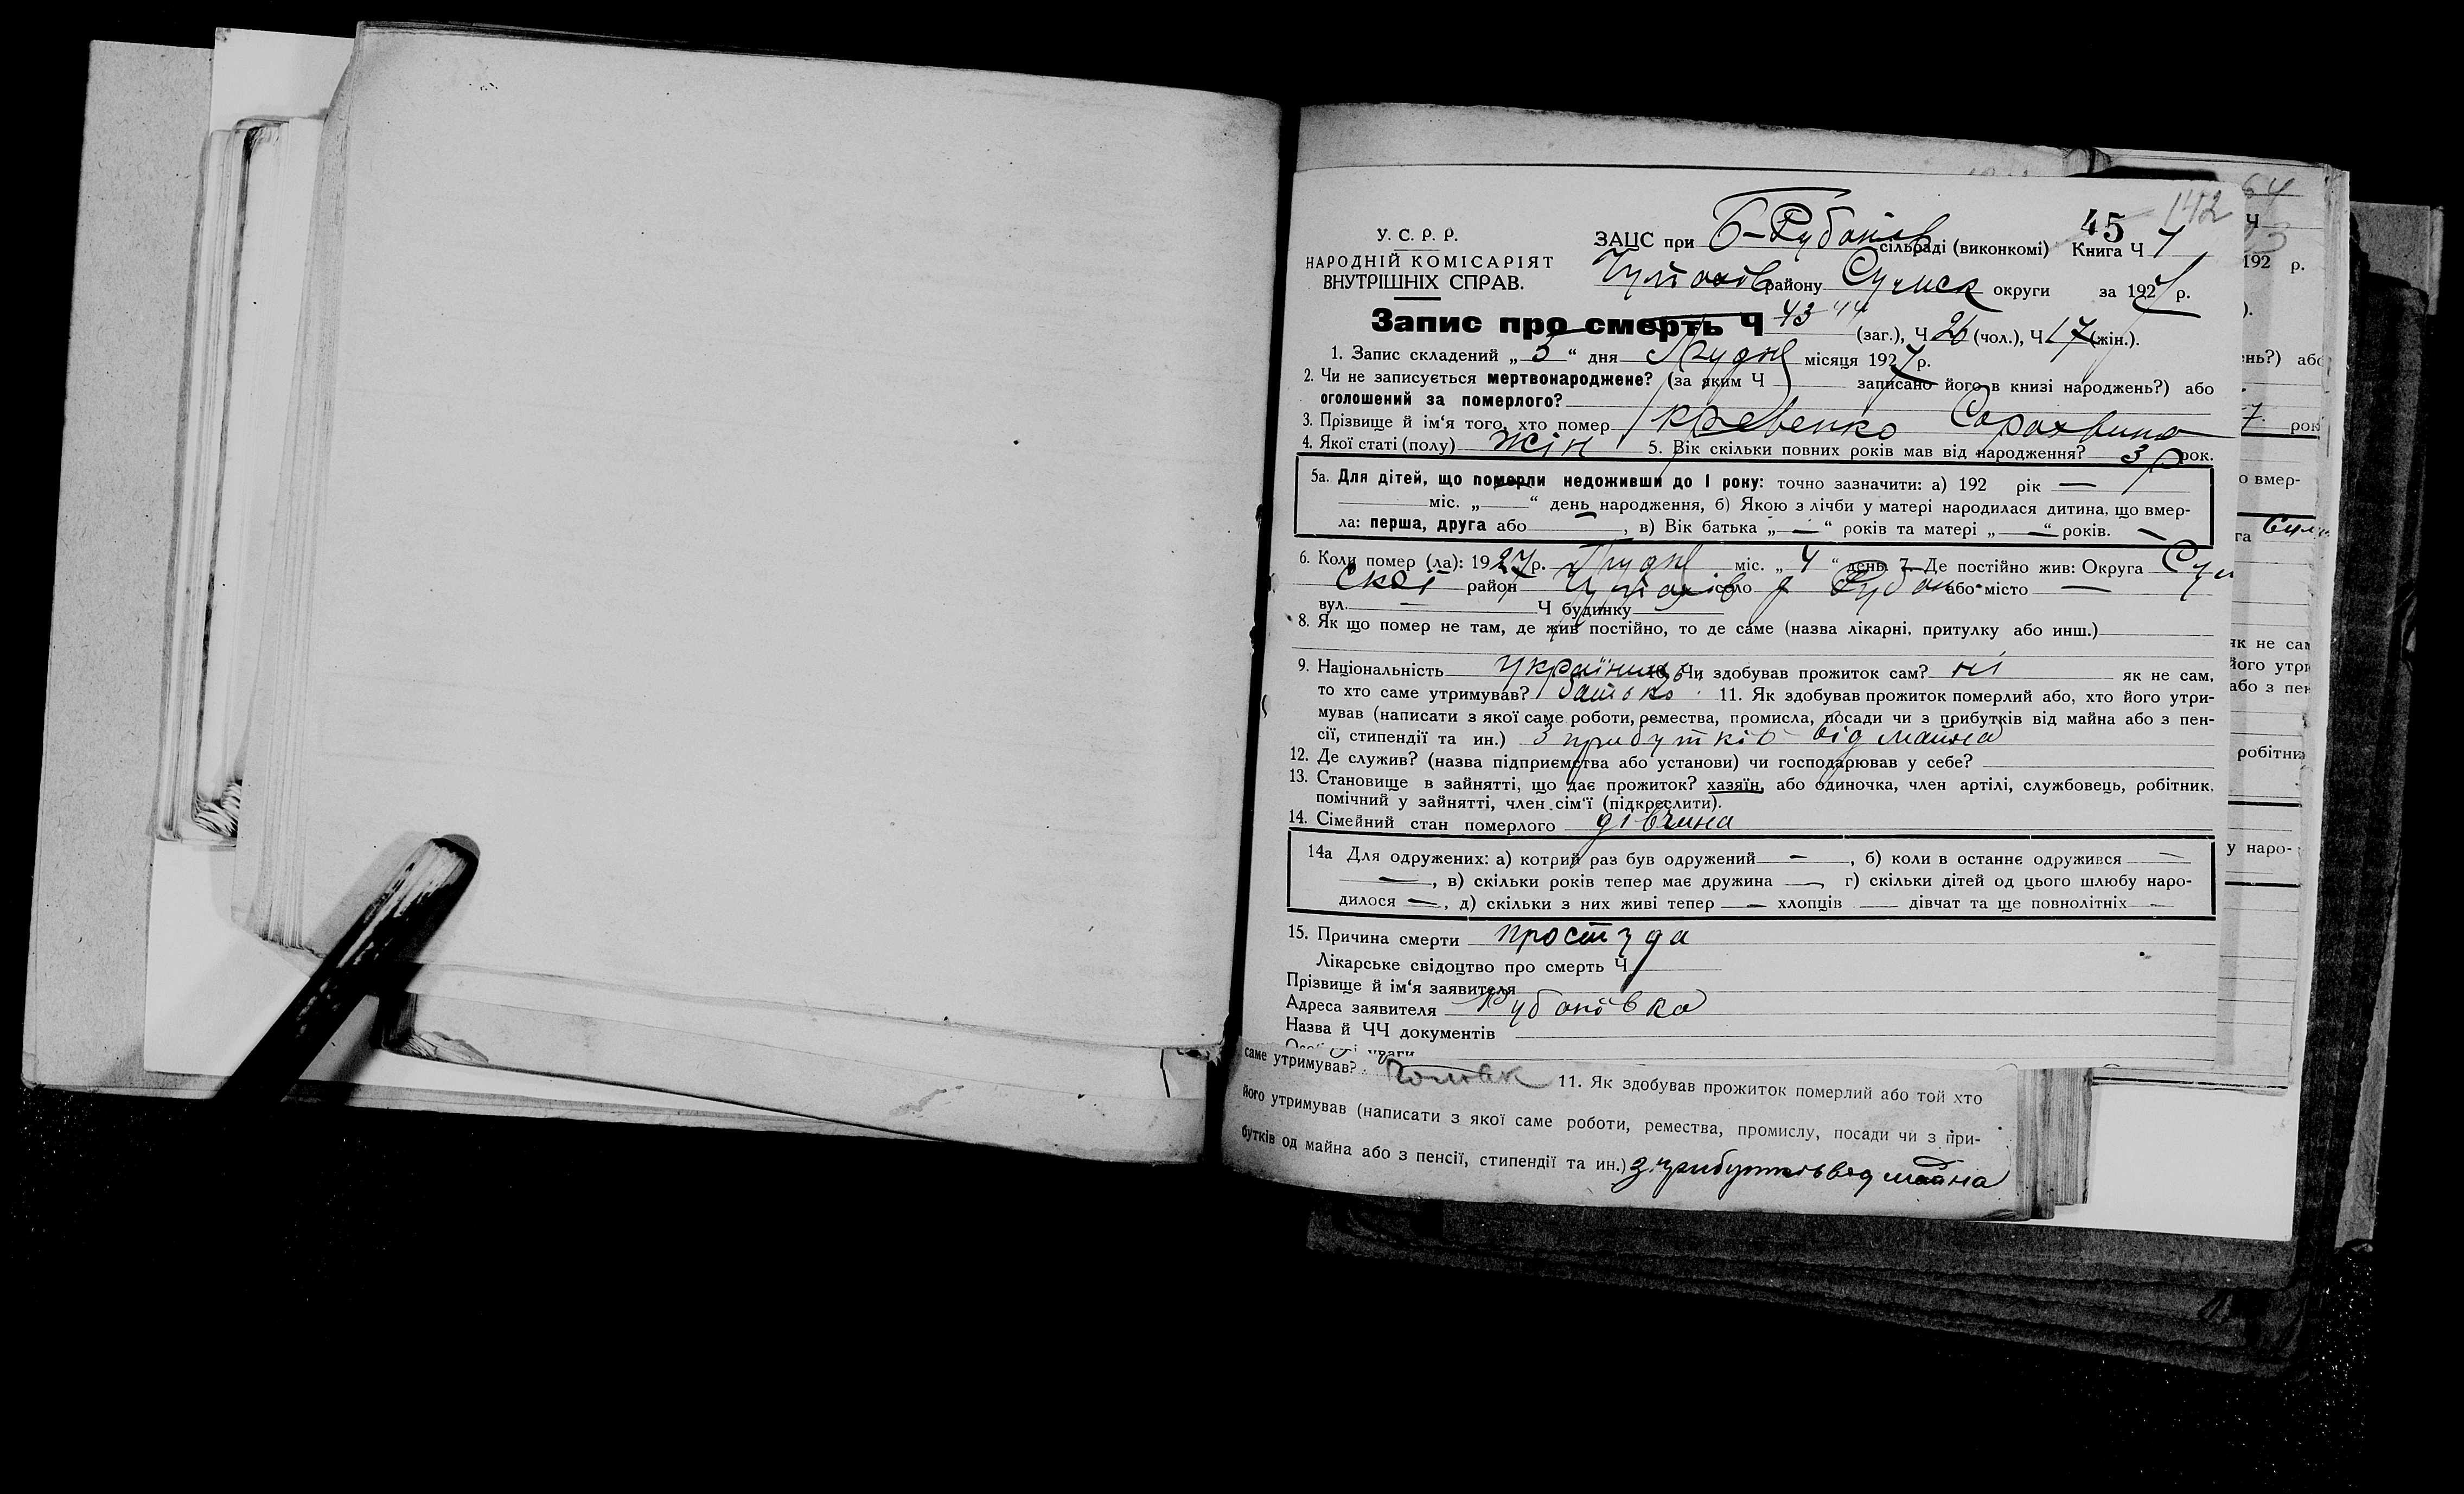 142
45
У. С. Р. Р.
НАРОДНІЙ КОМІСАРІЯТ
ВНУТРІШНІХ СПРАВ.
ЗАЦС при Б-Рубанів сільраді (виконкомі) Книга Ч 1
району Сумськ округи за 1927 р.
Запис про смерть Ч 43 44 (заг.), Ч 26 (чол.), Ч 17 (жін.).
1. Запис складений „ 5 “ дня Грудня місяця 1927 р.
2. Чи не записується мертвонароджене? (за яким Ч записано його в книзі народжень?) або
оголошений за померлого?
3. Прізвище й ім‘я того, хто помер
4. Якої статі (полу) жін 5. Вік скільки повних років мав від народження? 3 р рок.
5а. Для дітей, що померли недоживши до 1 року: точно зазначити: а) 192 рік —
міс. „ “ день народження, б) Якою з лічби у матері народилася дитина, що вмер-
ла: перша, друга або , в) Вік батька „ — “ років та матері „ — “ років. —
6. Коли помер (ла): 1927 р. Грудня міс. „ 4 “ день 7. Де постійно жив: Округа Сум
ской район село Рубан або місто —
вул. — Ч будинку
8. Як що помер не там, де жив постійно, то де саме (назва лікарні, притулку або инш.)
9. Національність Чи здобував прожиток сам? ні як не сам,
то хто саме утримував? батько 11. Як здобував прожиток померлий або, хто його утри-
мував (написати з якої саме роботи, ремества, промисла, посади чи з прибутків від майна або з пен-
сії, стипендії та ин.) З прибутків від майна
12. Де служив? (назва підприємства або установи) чи господарював у себе?
13. Становище в зайнятті, що дає прожиток? хазяїн, або одиночка, член артілі, службовець, робітник,
помічний у зайнятті, член сім‘ї (підкреслити).
14. Сімейний стан померлого дівчина
14а Для одружених: а) котрий раз був одружений — , б) коли в останнє одружився —
— , в) скільки років тепер має дружина — г) скільки дітей од цього шлюбу наро-
дилося — , д) скільки з них живі тепер — хлопців — дівчат та ще повнолітніх —
15. Причина смерти простуда
Лікарське свідоцтво про смерть Ч
Прізвище й ім‘я заявителя
Адреса заявителя Рубанівка
Назва й ЧЧ документів
саме утримував? 11. Як здобував прожиток померлий або той хто
його утримував (написати з якої саме роботи, ремества, промислу, посади чи з при-
бутків од майна або з пенсії, стипендії та ин.) З прибутків від майна